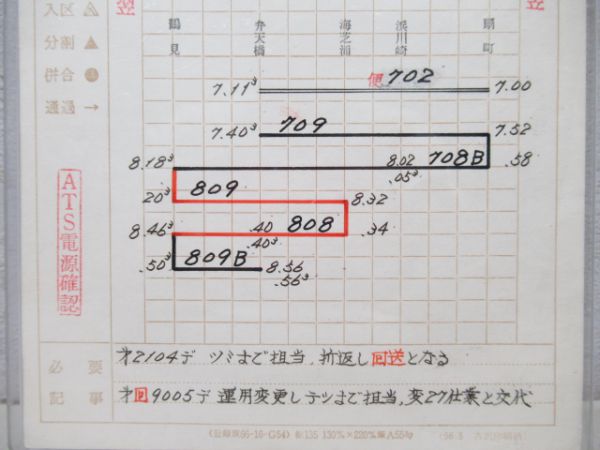 翌
翌
入区
分割 ▲
併合
通過 →
鶴見
弁天橋
海芝浦
浜川崎
扇町
便 702
7.11³
7.00
709
7.40³
7.52
8.18³
8.02
.05³
708B
.58
20³
809
8.32
8.46³
.40
.40³
808
.34
.50³
809B
8.56
.56³
ATS電源確認
必要
記事
オ2104デ ツミまで担当, 折返し回送となる
オ回9005デ 運用変更しテツまで担当, 変27仕業と交代